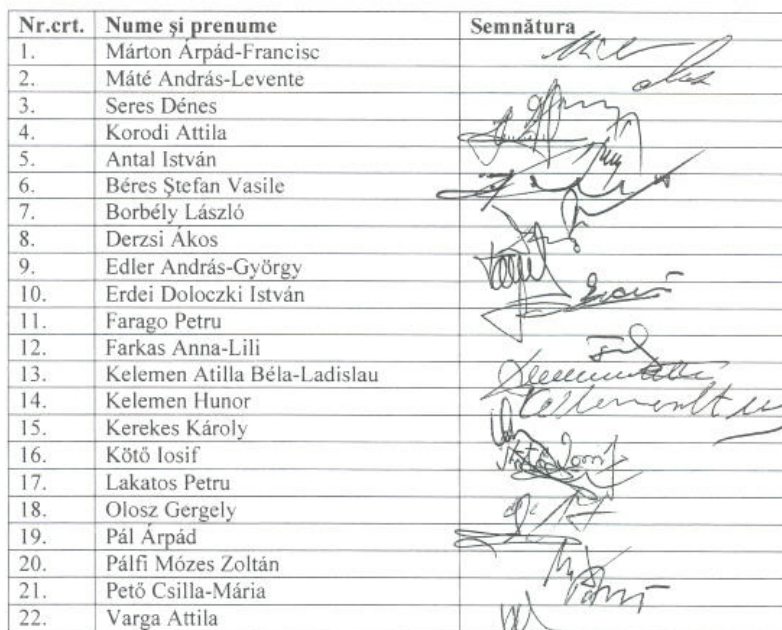 Nr.crt. Nume și prenume Semnătura
1. Márton Árpád-Francisc
2. Máté András-Levente
3. Seres Dénes
4. Korodi Attila
5. Antal István
6. Béres Ştefan Vasile
7. Borbély László
8. Derzsi Ákos
9. Edler András-György
10. Erdei Doloczki István
11. Farago Petru
12. Farkas Anna-Lili
13. Kelemen Atilla Béla-Ladislau
14. Kelemen Hunor
15. Kerekes Károly
16. Kötő Iosif
17. Lakatos Petru
18. Olosz Gergely
19. Pál Árpád
20. Pálfi Mózes Zoltán
21. Pető Csilla-Mária
22. Varga Attila